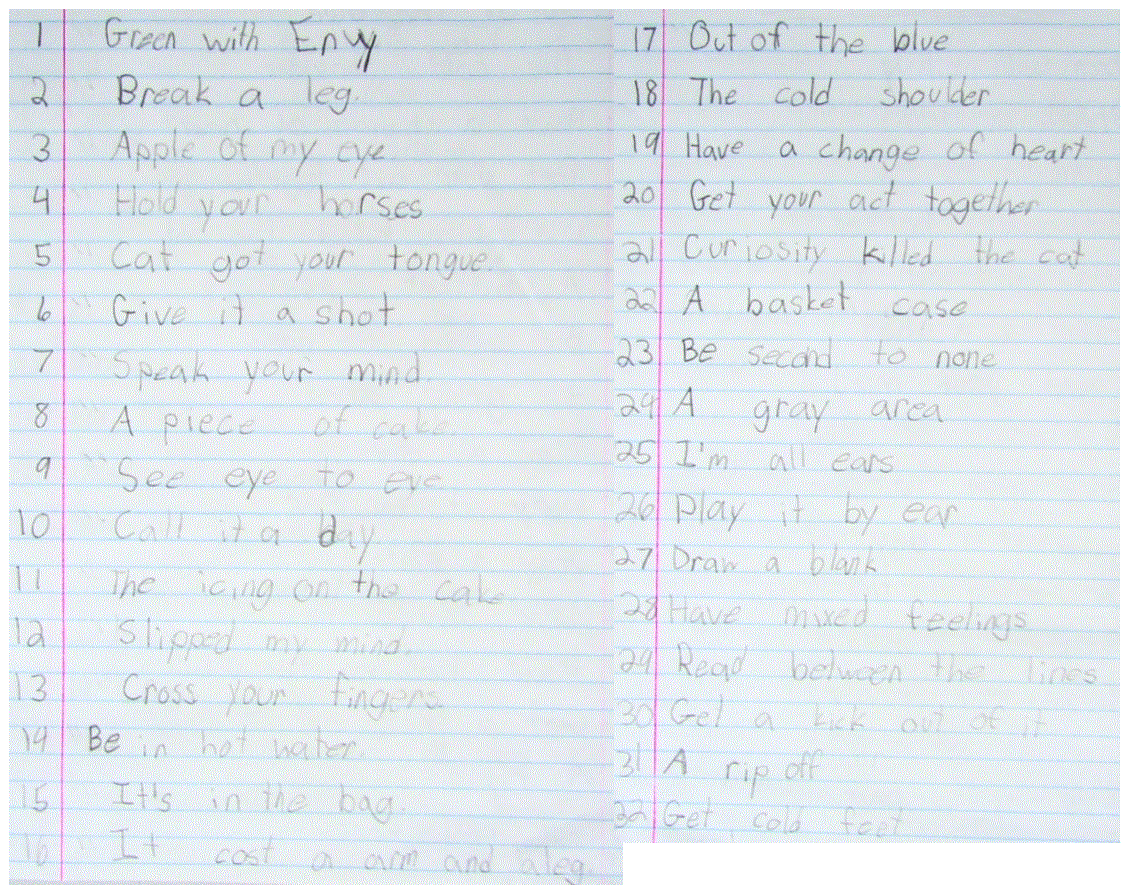 1 Green with Envy
2 Break a leg.
3 Apple of my eye
4 Hold your horses
5 Cat got your tongue.
6 Give it a shot
7 Speak your mind.
8 A piece of cake.
9 See eye to eye
10 Call it a day
11 The icing on the cake
12 Slipped my mind.
13 Cross your fingers.
14 Be in hot water.
15 It's in the bag.
16 It cost a arm and a leg.
17 Out of the blue
18 The cold shoulder
19 Have a change of heart
20 Get your act together
21 Curiosity killed the cat
22 A basket case
23 Be second to none
24 A gray area
25 I'm all ears
26 Play it by ear
27 Draw a blank
28 Have mixed feelings
29 Read between the lines
30 Get a kick out of it
31 A rip off
32 Get cold feet